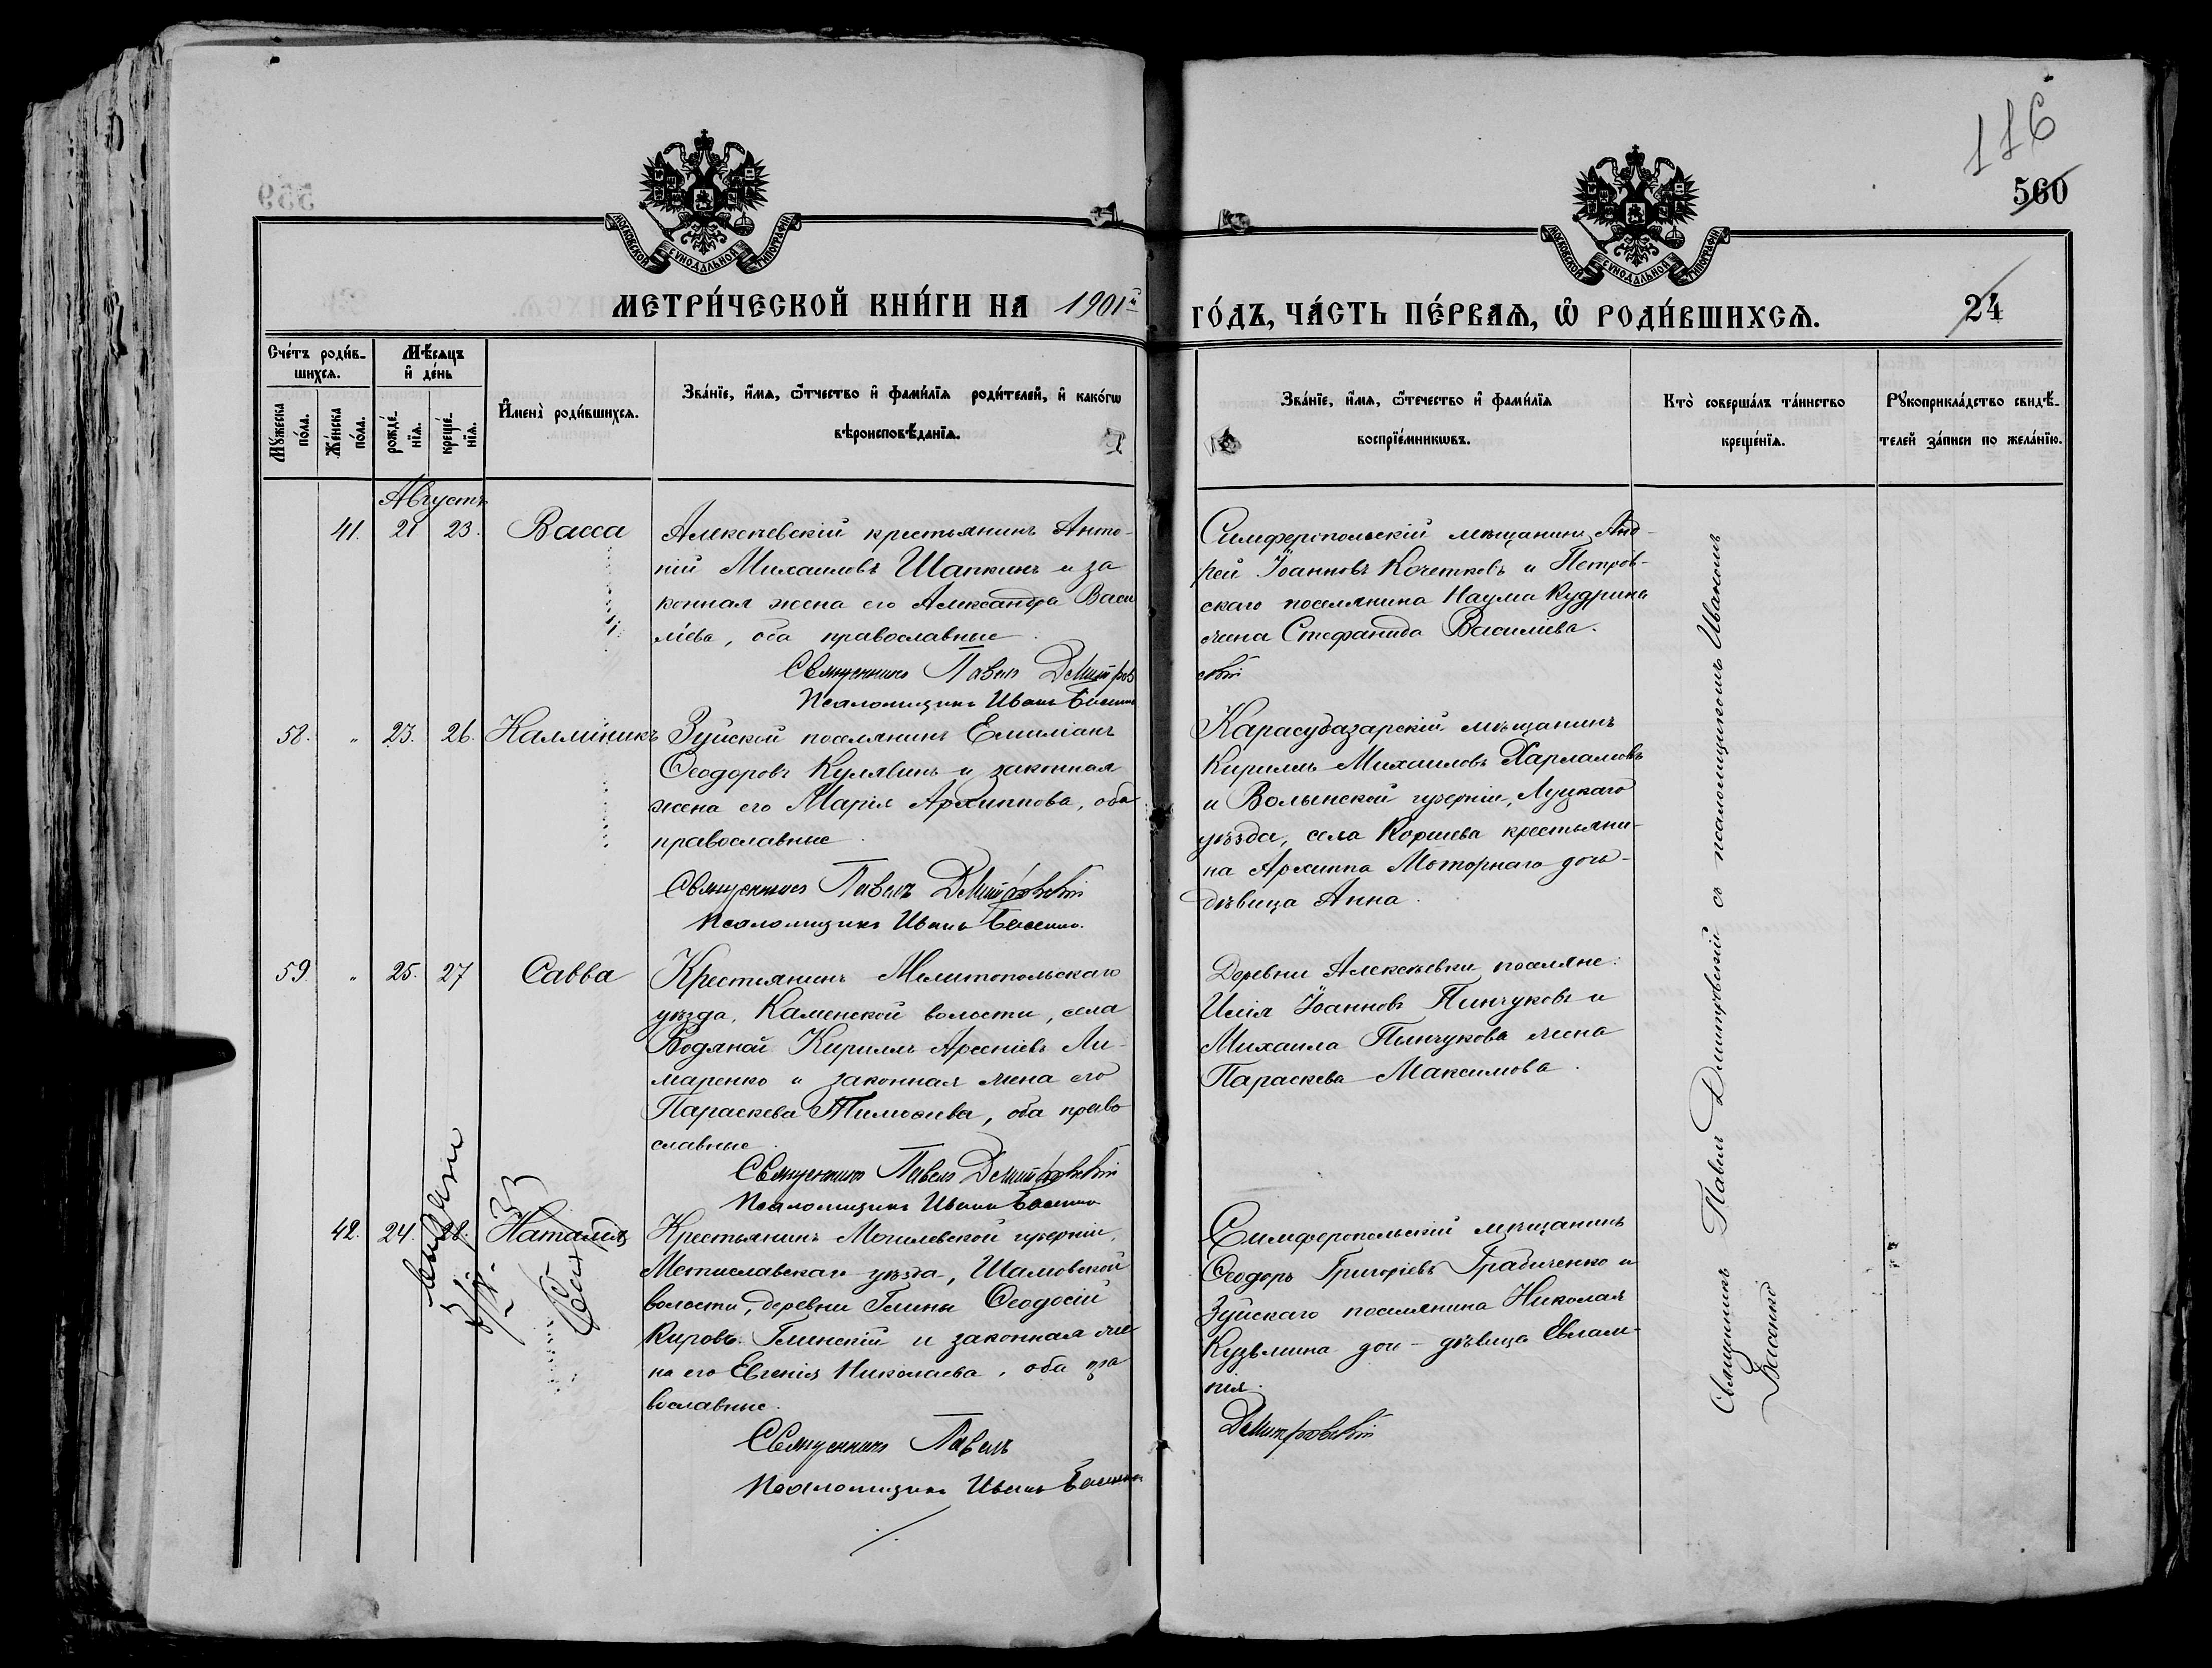 116
560
МОСКОВСКОЙ СѴНОДАЛЬНОЙ ТИПОГРАФІИ
МОСКОВСКОЙ СѴНОДАЛЬНОЙ ТИПОГРАФІИ
МЕТРИ́ЧЕСКОЙ КНИ́ГИ НА 1901й ГО́ДЪ, ЧА́СТЬ ПЕ́РВАѦ, Ѡ҆ РОДИ́ВШИХСѦ.
24
Сче́тъ роди́в-
шихсѧ.
Мꙋ́жеска
по́ла.
Же́нска
по́ла.
Мѣ́сѧцъ
и҆ де́нь
рожде́-
нїѧ.
креще́-
нїѧ.
И҆мена̀ роди́вшихсѧ.
Зва́нїе, и҆́мѧ, ѻ҆́тчество и҆ фами́лїѧ роди́телей, и҆ како́гѡ
вѣроисповѣ́данїѧ.
Зва́нїе, и҆́мѧ, ѻ҆́течество и҆ фами́лїѧ
воспрїе́мникѡвъ.
Кто̀ соверша́лъ та́инство
креще́нїѧ.
Рꙋкоприкла́дство свидѣ́-
телей за́писи по жела́нїю.
Августъ
41. 21 23. Васса
Алексѣевскій крестьянинъ Анто-
ній Михаиловъ Шапкинъ и за
конная жена его Александра Васи
ліева, оба православные.
Священникъ Павелъ Димитров
Псаломщикъ Иванъ Басенко
Симферопольскій мѣщанинъ Анд-
рей Іоанновъ Кочетковъ и Петров-
скаго поселянина Наума Кудрина
жена Стефанида Василіева.
скій
58. " 23. 26. Каллиникъ
Зуйской поселянинъ Емиліанъ
Ѳеодоровъ Кулявинъ и законная
жена его Марія Архиппова, оба
православные.
Священникъ Павелъ Димитровскій
Псаломщикъ Иванъ Басенко.
Карасубазарскій мѣщанинъ
Кириллъ Михаиловъ Харламовъ
и Волынской губерніи, Луцкаго
уѣзда, села Коршева крестьяни-
на Архиппа Моторнаго дочь-
дѣвица Анна.
59. " 25. 27 Савва
Крестьянинъ Мелитопольскаго
уѣзда, Каменской волости, села
Водяной Кириллъ Арсеніевъ Ли-
маренко и законная жена его
Параскева Тимоѳеева, оба право
славные.
Священникъ Павелъ Димитровскій
Псаломщикъ Иванъ Басенко
Деревни Алексѣевки поселяне:
Илія Іоанновъ Пинчуковъ и
Михаила Пинчукова жена
Параскева Максимова.
42. 24. 28. Наталія
Крестьянинъ Могилевской губерніи,
Мстиславскаго уѣзда, Шамовской
волости, деревни Глины Ѳеодосій
Кировъ Глинскій и законная же
на его Евгенія Николаева, оба пра
вославные.
Священникъ Павелъ
Псаломщикъ Иванъ Басенко
Симферопольскій мѣщанинъ
Ѳеодоръ Григоріевъ Грабиченко и
Зуйскаго поселянина Николая
Кузьмина дочь - дѣвица Евлам-
пія.
Димитровскій
Священникъ Павелъ Димитровскій съ псаломщикомъ Иваномъ
Басенко